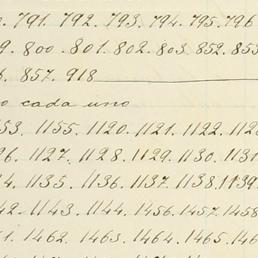 791. 792. 793. 794. 795. 796
9. 800. 801. 802. 803. 852. 853
857. 918
cada uno
53. 1155. 1120. 1121. 1122. 112
26. 1127. 1128. 1129. 1130. 1131
4. 1135. 1136. 1137. 1138. 1139
42. 1143. 1144. 1456. 1457. 1458
1. 1462. 1463. 1464. 1465. 146